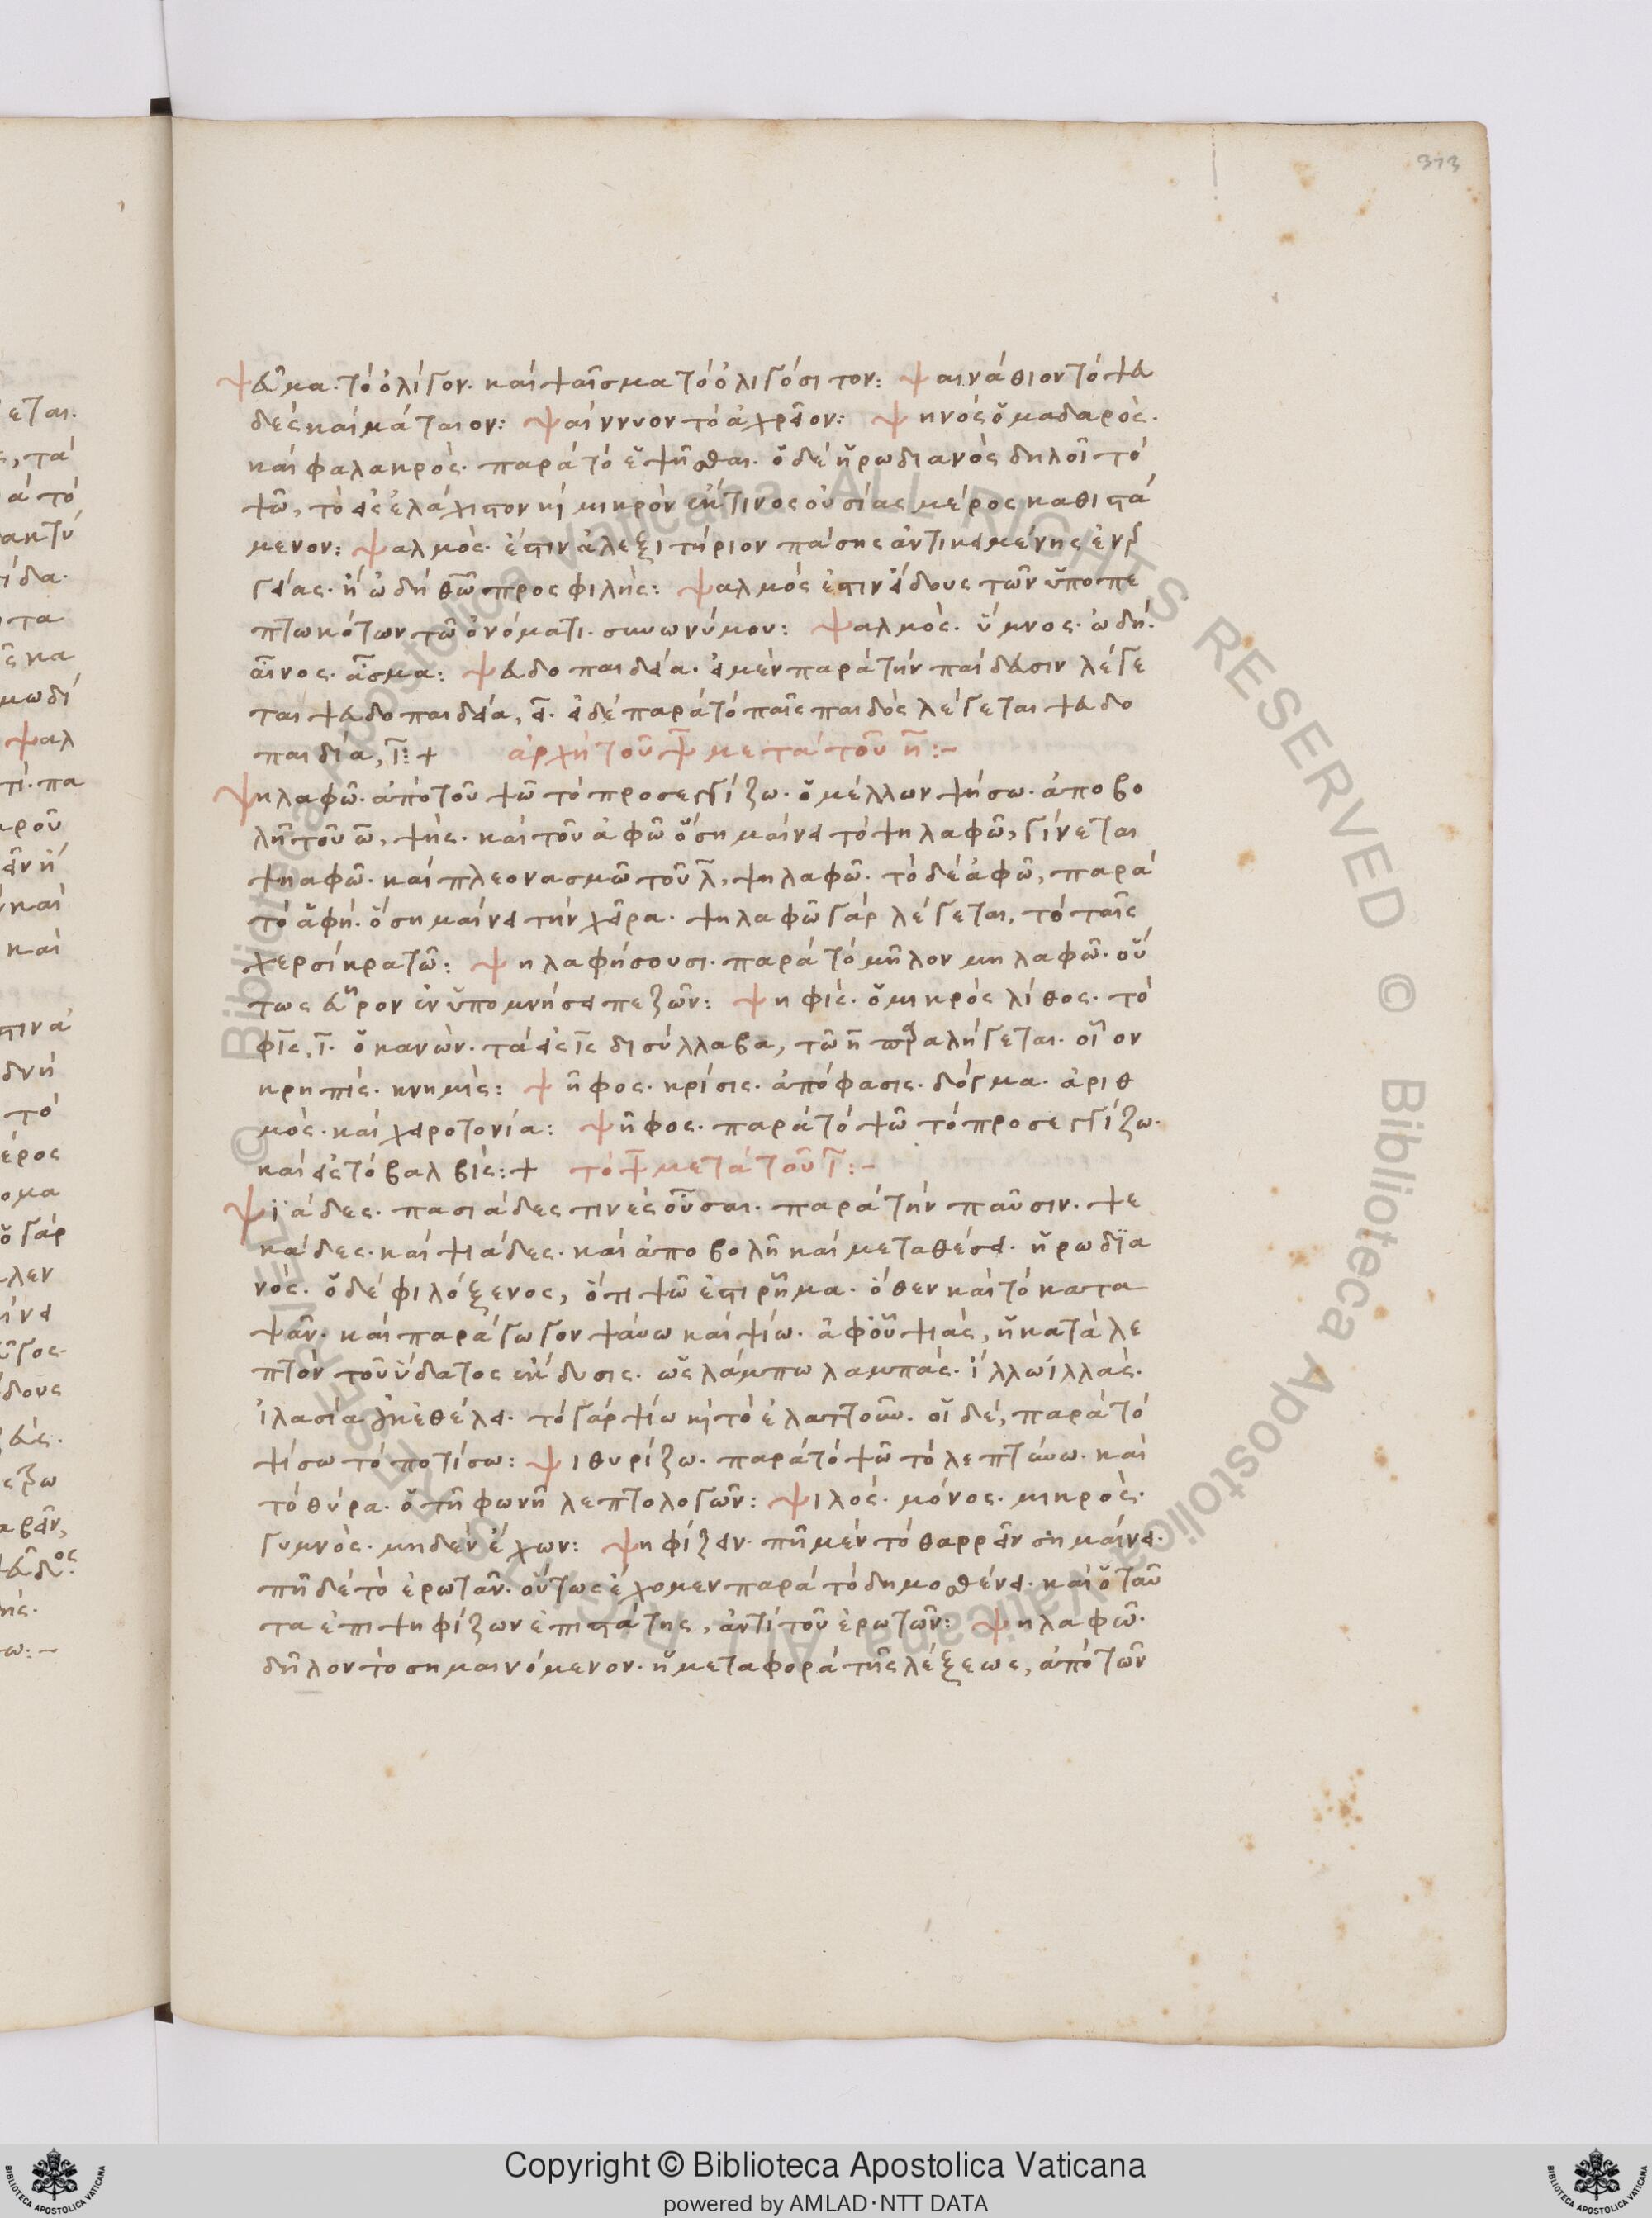 373
ψεῦμα. τὸ ὀλίγον. καὶ ψαῖσμα τὸ ὀλιγόσιτον: ψαινάθιον τὸ ψευ
δὲς καὶ μάταιον: ψαίννυον τὸ ἀχρεῖον: ψηνός ὁ μαδαρός.
καὶ φαλακρός. παρὰ τὸ ἐψῆσθαι. ὁ δὲ ἡρωδιανὸς δηλοῖ τὸ
ψῶ, τὸ εἰς ἐλάχιστον καὶ μικρὸν ἐκ τινος οὐσίας μέρος καθιστά
μενον: ψαλμός. ἐστιν ἀλεξιτήριον πάσης ἀντικειμένης ἐνερ
γείας. ἢ ὠδὴ θεῶ προσφιλής: ψαλμός ἐστιν εἴδους τῶν ὑποπε
πτωκότων τῶ ὀνόματι. συνωνύμου: ψαλμός. ὕμνος. ὠδή.
αἶνος. ἆσμα: ψευδοπαιδεία. εἰ μὲν παρὰ τὴν παίδευσιν λέγε
ται ψευδοπαιδεία, ει. εἰ δὲ παρὰ τὸ παῖς παιδὸς λέγεται ψευδο
παιδία, ι: + ἀρχὴ τοῦ ψ μετὰ τοῦ η:-
ψηλαφῶ. ἀπὸ τοῦ ψῶ τὸ προσεγγίζω. ὁ μέλλων ψήσω. ἀποβο
λῆ τοῦ ω, ψής. καὶ τοῦ ἀφῶ ὃ σημαίνει τὸ ψηλαφῶ, γίνεται
ψηαφῶ. καὶ πλεονασμῶ τοῦ λ, ψηλαφῶ. τὸ δὲ ἀφῶ, παρὰ
τὸ ἁφή. ὃ σημαίνει τὴν χεῖρα. ψηλαφῶ γὰρ λέγεται, τὸ ταῖς
χερσὶ κρατῶ: ψηλαφήσουσι. παρὰ τὸ μῆλον μηλαφῶ. οὕ
τως εὗρον ἐν ὑπομνήσει πεζῶν: ψηφίς. ὁ μικρὸς λίθος. τὸ
φις, ι. ὁ κανών. τὰ εἰς ις δισύλλαβα, τῶ η παραλήγεται. οἷον
κρηπίς. κνημίς: ψῆφος. κρίσις. ἀπόφασις. δόγμα. ἀριθ
μός. καὶ χειροτονία: ψῆφος. παρὰ τὸ ψῶ τὸ προσεγγίζω.
καὶ εἰς τὸ βαλβίς: + τὸ ψ μετὰ τοῦ ι:-
ψϊάδες. πασιάδες τινὲς οὖσαι. παρὰ τὴν παῦσιν. ψε
κάδες. καὶ ψιάδες. καὶ ἀποβολῆ καὶ μεταθέσει. ἡρωδϊα
νός. ὁ δὲ φιλόξενος, ὅτι ψῶ ἐστι ῥῆμα. ὅθεν καὶ τὸ κατα
ψᾶν. καὶ παράγωγον ψάυω καὶ ψίω. ἀφ' οὗ ψιάς, ἡ κατὰ λε
πτὸν τοῦ ὕδατος ἔκδυσις. ὡς λάμπω λαμπάς. ἴλλω ἰλλάς.
τὸ γὰρ ψίω καὶ τὸ ἐλαττοῦν. οἱ δέ, παρὰ τὸ
ψίσω τὸ ποτίσω: ψιθυρίζω. παρὰ τὸ ψῶ τὸ λεπτύνω. καὶ
τὸ θύρα. ὁ τῆ φωνῆ λεπτολογῶν: ψιλός. μόνος. μικρός.
γυμνός. μηδὲν ἔχων: ψηφίζειν. πῆ μὲν τὸ θαρρεῖν σημαίνει.
πῆ δὲ τὸ ἐρωτᾶν. οὕτως ἔχομεν παρὰ τὸ δημοσθένει. καὶ ὁ ταῦ
τα ἐπιψηφίζων ἐπιστάτης, ἀντὶ τοῦ ἐρωτῶν: ψηλαφῶ.
δῆλον τὸ σημαινόμενον. ἡ μεταφορὰ τῆς λέξεως, ἀπὸ τῶν
Copyright © Biblioteca Apostolica Vaticana
powered by AMLAD·NTT DATA